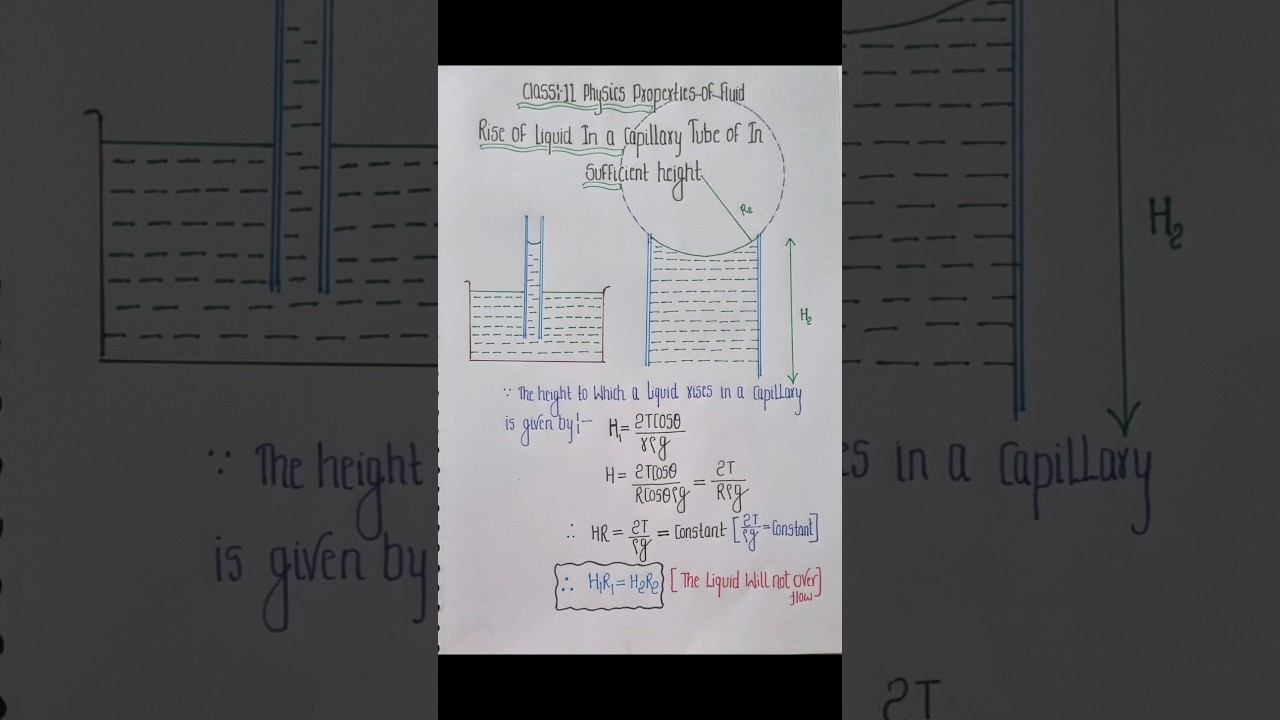 Class:-11 Physics Properties of fluid
Rise of Liquid In a Capillary Tube of In
Sufficient height
R2
H2
∵ The height to Which a Liquid rises in a Capillary
is given by:- H₁ = 2TCosθ/rρg
H = 2TCosθ/RCosθρg = 2T/Rρg
∴ HR = 2T/ρg = Constant [2T/ρg = Constant]
∴ H₁R₁ = H₂R₂ [The Liquid Will not Over
flow]
H2
∵ The height
es in a Capillary
is given by
2T